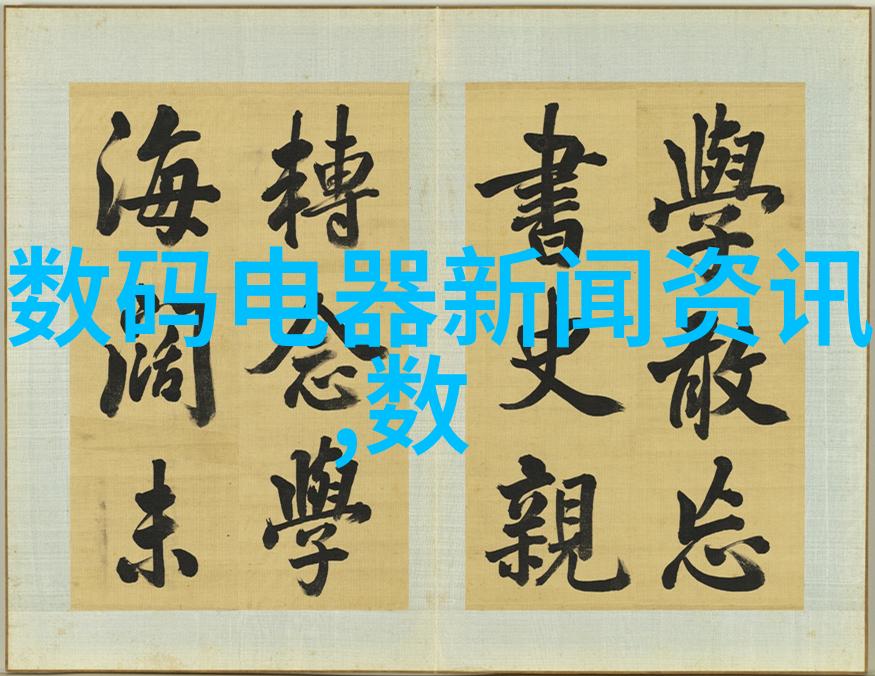 数码电器新闻资讯
,数
學敢忘
書史親
轉念學
海闊未